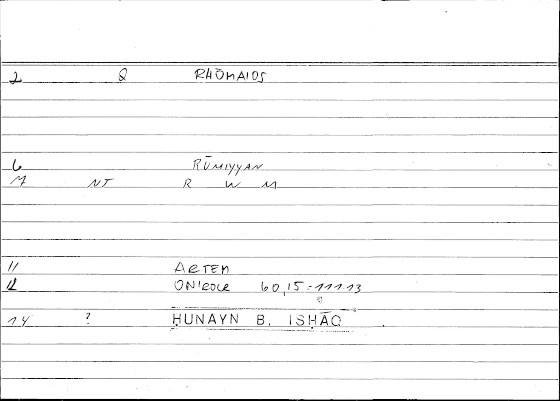 2 8 RHŌMAIOS
6 RŪMIYYAN
7 NT R W M
11 ARTEM
12 ONIROCR 60,15 = 111.13
14 ? ḤUNAYN B. ISḤĀQ